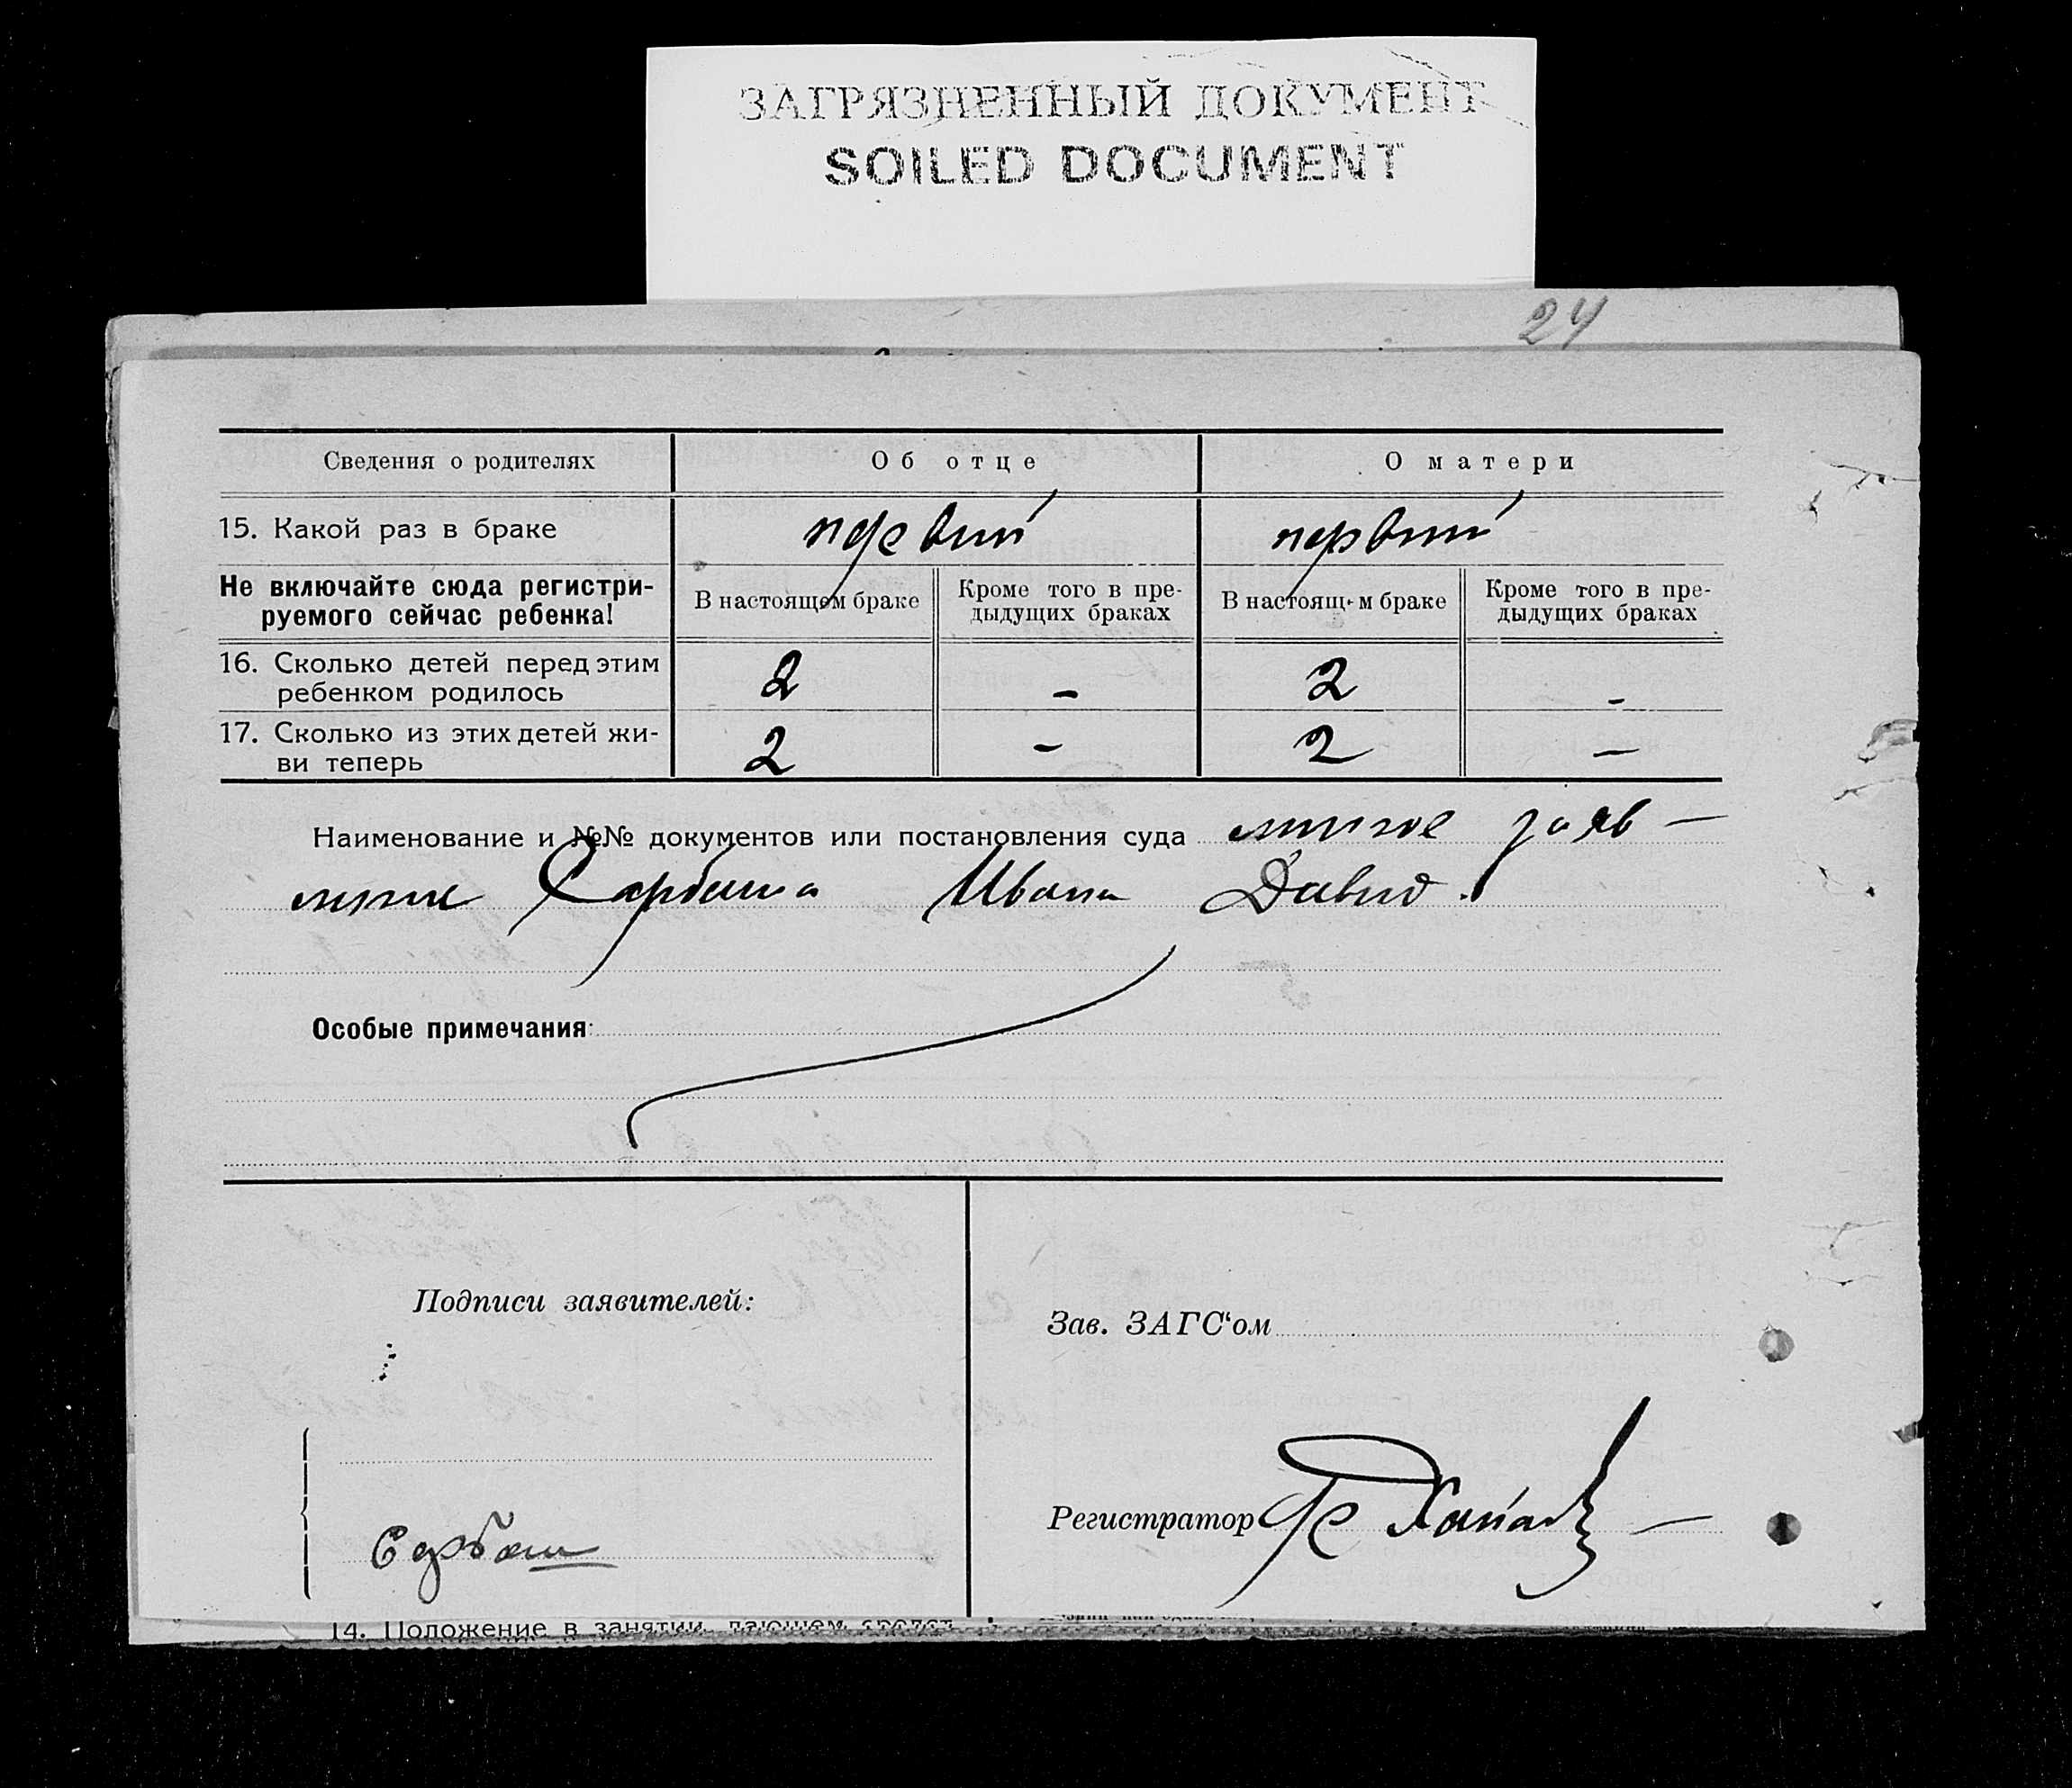 ЗАГРЯЗНЕННЫЙ ДОКУМЕНТ
SOILED DOCUMENT
24
Сведения о родителях Об отце О матери
15. Какой раз в браке первый первый
Не включайте сюда регистри-
руемого сейчас ребенка!
В настоящем браке Кроме того в пре-
дыдущих браках В настоящем браке Кроме того в пре-
дыдущих браках
16. Сколько детей перед этим
ребенком родилось 2 – 2 –
17. Сколько из этих детей жи-
ви теперь 2 – 2 –
Наименование и №№ документов или постановления суда личное заяв-
ление Сарбаша Ивана Давид.
Особые примечания
Подписи заявителей:
Зав. ЗАГС‘ом
Регистратор
Сарбаш
14. Положение в занятии, дающем средст